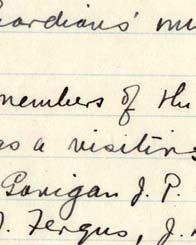 Guardians' me
members of the
as a visiting
Gavigan J. P.
J. Fergus, J.